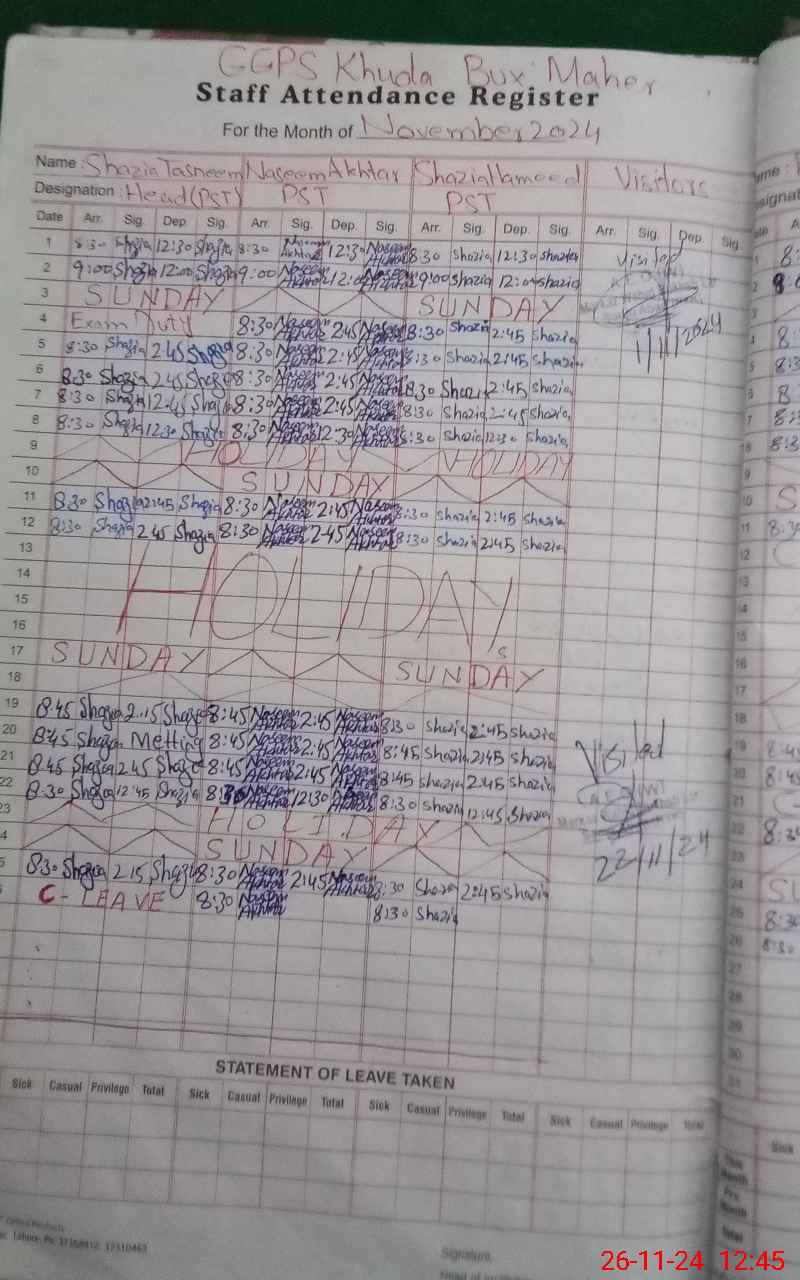 GGPS Khuda Bux Maher
Staff Attendance Register
For the Month of November 2024
Name : Shazia Tasneem Naseem Akhtar Shazia Hameed Visitors
Designation : Head (PST) PST PST
Date Arr. Sig. Dep. Sig. Arr. Sig. Dep. Sig. Arr. Sig. Dep. Sig. Arr. Sig. Dep. Sig.
1 8:30 Shazia 12:30 Shazia 8:30 Naseem Akhtar 12:30 Naseem Akhtar 8:30 Shazia 12:30 Shazia Visited
2 9:00 Shazia 12:00 Shazia 9:00 Naseem Akhtar 12:00 Naseem Akhtar 9:00 Shazia 12:00 Shazia
3 SUNDAY SUNDAY
4 Exam Duty 8:30 Naseem Akhtar 2:45 Naseem Akhtar 8:30 Shazia 2:45 Shazia 1/11/2024
5 8:30 Shazia 2:45 Shazia 8:30 Naseem Akhtar 2:45 Naseem Akhtar 8:30 Shazia 2:45 Shazia
6 8:30 Shazia 2:45 Shazia 8:30 Naseem Akhtar 2:45 Naseem Akhtar 8:30 Shazia 2:45 Shazia
7 8:30 Shazia 12:45 Shazia 8:30 Naseem Akhtar 2:45 Naseem Akhtar 8:30 Shazia 2:45 Shazia
8 8:30 Shazia 12:30 Shazia 8:30 Naseem Akhtar 12:30 Naseem Akhtar 8:30 Shazia 12:30 Shazia
9 HOLIDAY HOLIDAY
10 SUNDAY
11 8:30 Shazia 2:45 Shazia 8:30 Naseem Akhtar 2:45 Naseem Akhtar 8:30 Shazia 2:45 Shazia
12 8:30 Shazia 2:45 Shazia 8:30 Naseem Akhtar 2:45 Naseem Akhtar 8:30 Shazia 2:45 Shazia
13
14
15 HOLIDAY,s
16
17 SUNDAY SUNDAY
18
19 8:45 Shazia 2:15 Shazia 8:45 Naseem Akhtar 2:45 Naseem Akhtar 8:30 Shazia 2:45 Shazia
20 8:45 Shazia Metting 8:45 Naseem Akhtar 2:45 Naseem Akhtar 8:45 Shazia 2:45 Shazia Visited
21 8:45 Shazia 2:45 Shazia 8:45 Naseem Akhtar 2:45 Naseem Akhtar 8:45 Shazia 2:45 Shazia
22 8:30 Shazia 12:45 Shazia 8:30 Naseem Akhtar 12:30 Naseem Akhtar 8:30 Shazia 12:45 Shazia
23 HOLIDAY 22/11/24
4 SUNDAY
5 8:30 Shazia 2:15 Shazia 8:30 Naseem Akhtar 2:45 Naseem Akhtar 8:30 Shazia 2:45 Shazia
C - LEAVE 8:30 Naseem Akhtar 8:30 Shazia
STATEMENT OF LEAVE TAKEN
Sick Casual Privilege Total Sick Casual Privilege Total Sick Casual Privilege Total Sick Casual Privilege Total
Signature
26-11-24 12:45